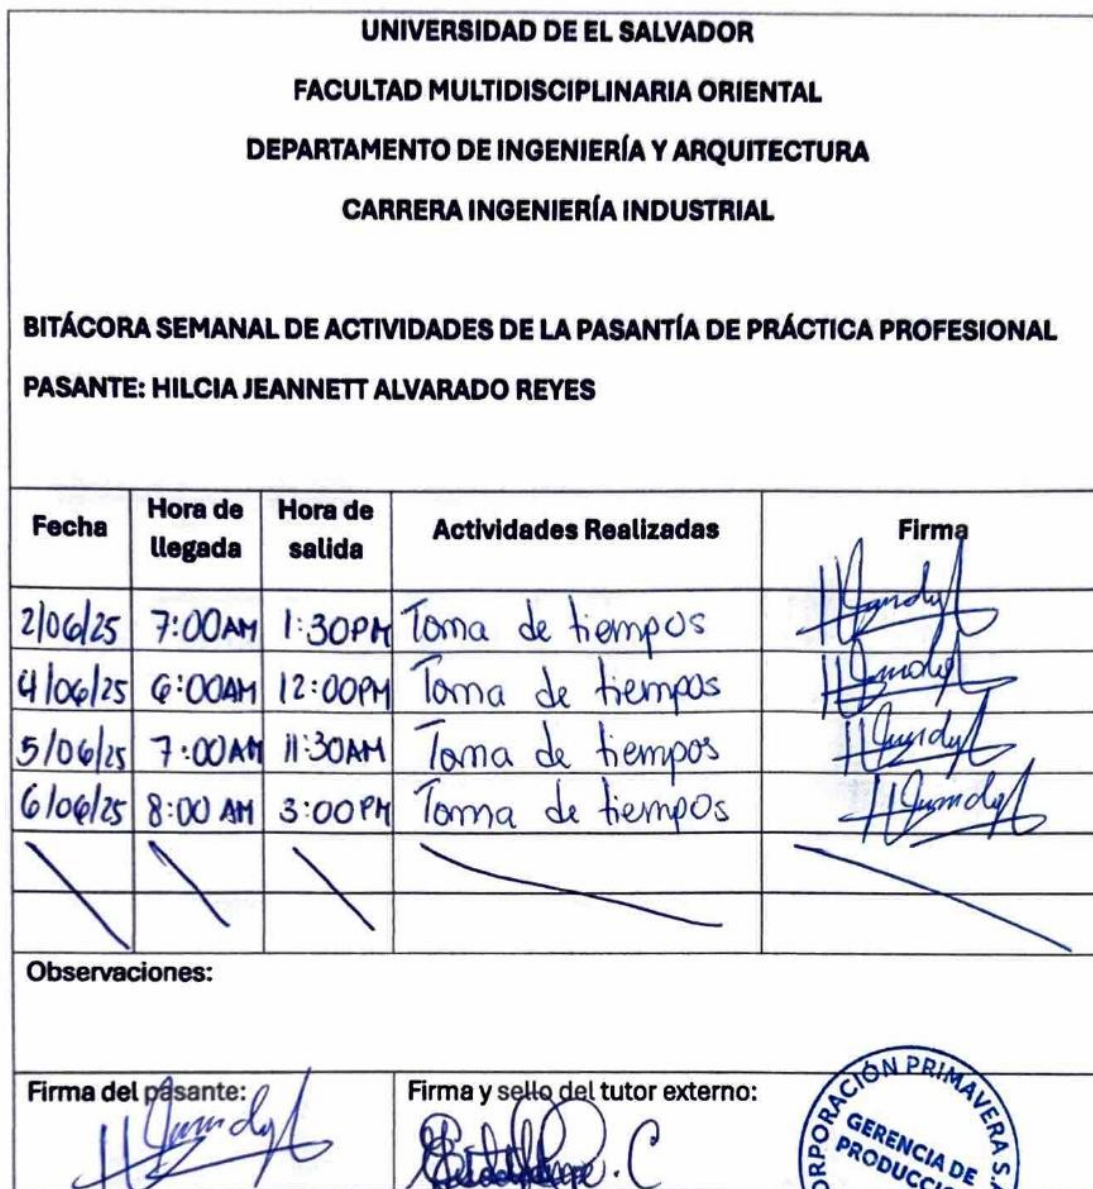 UNIVERSIDAD DE EL SALVADOR
FACULTAD MULTIDISCIPLINARIA ORIENTAL
DEPARTAMENTO DE INGENIERÍA Y ARQUITECTURA
CARRERA INGENIERÍA INDUSTRIAL
BITÁCORA SEMANAL DE ACTIVIDADES DE LA PASANTÍA DE PRÁCTICA PROFESIONAL
PASANTE: HILCIA JEANNETT ALVARADO REYES
Fecha Hora de llegada Hora de salida Actividades Realizadas Firma
2/06/25 7:00AM 1:30PM Toma de tiempos
4/06/25 6:00AM 12:00PM Toma de tiempos
5/06/25 7:00AM 11:30AM Toma de tiempos
6/06/25 8:00 AM 3:00PM Toma de tiempos
Observaciones:
Firma del pasante: Firma y sello del tutor externo:
PRIMAVERA
GERENCIA DE